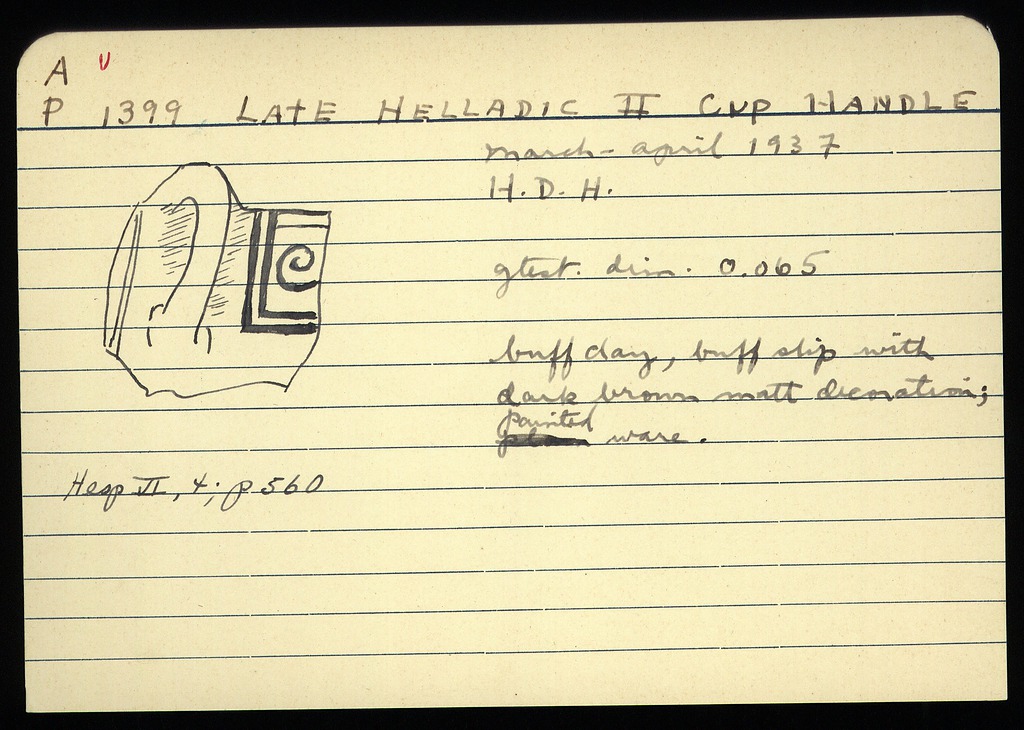 A U
P 1399 LATE HELLADIC II CUP HANDLE
March - April 1937
H. D. H.
gtest. dim. 0.065
buff clay, buff slip with
dark brown matt decoration;
painted
ware.
Hesp VI, 4; p 560